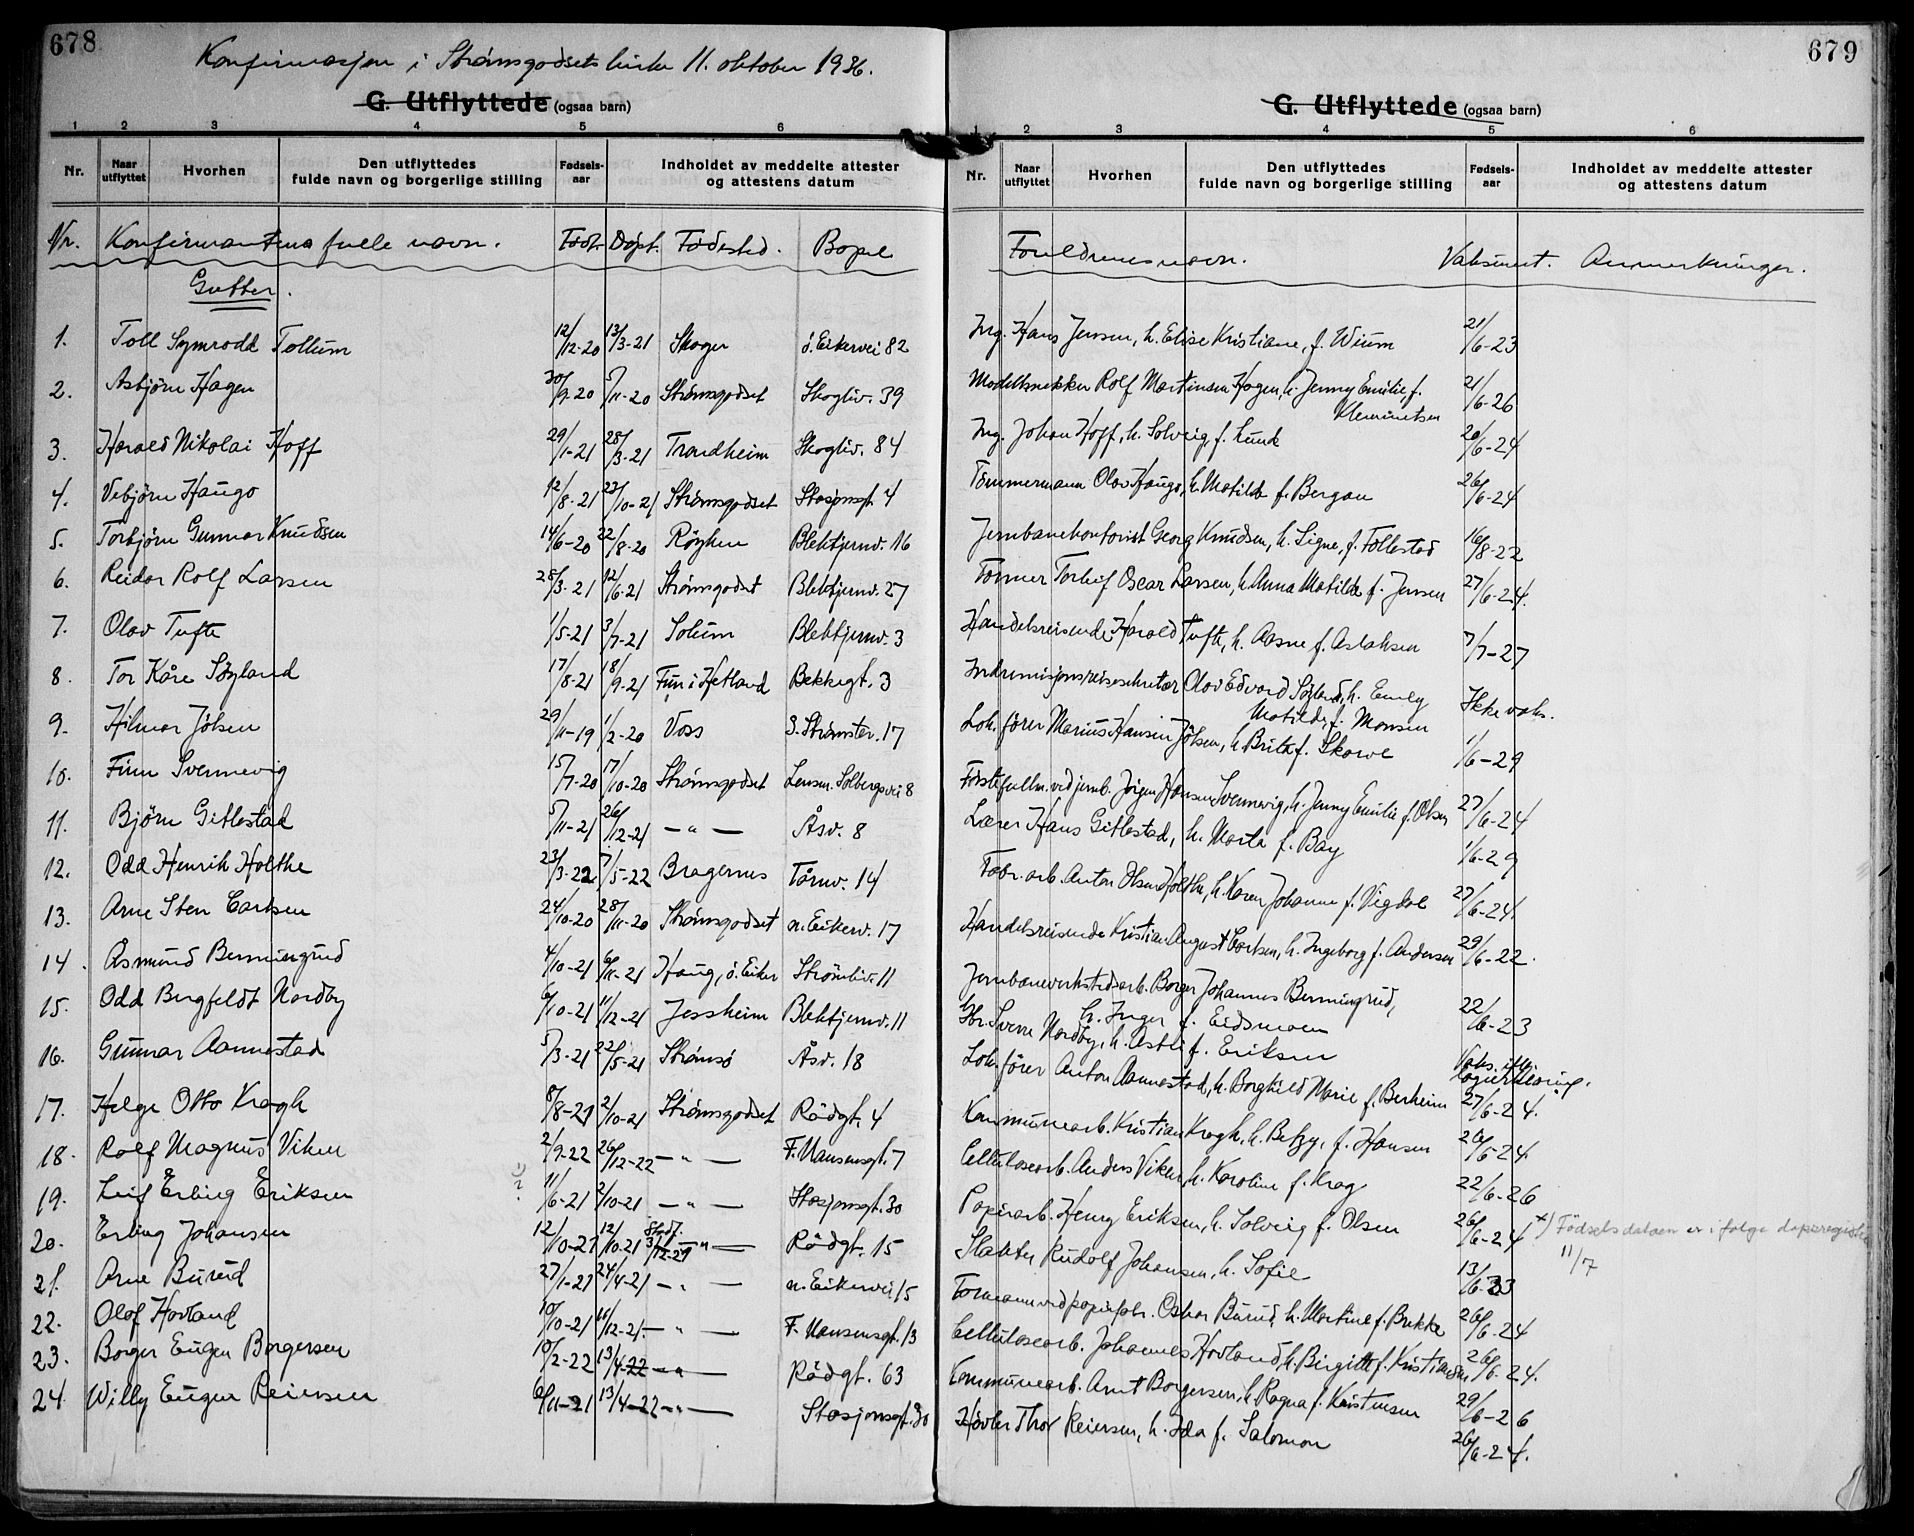 678
Konfirmasjon i Strømsgodsets kirke 11. oktober 1936.
G. Utflyttede (ogsaa barn)
1 2 3 4 5 6
Nr. Naar utflyttet Hvorhen Den utflyttedes fulde navn og borgerlige stilling Fødsels-aar Indholdet av meddelte attester og attestens datum
Nr. Konfirmantens fulle navn. Født Døpt. Fødested. Bopel
Gutter.
1. Toll Symrodd Tollum 12/12-20 13/3-21 Skoger ö. Eikervei 82
2. Asbjørn Hagen 30/9-20 5/11-20 Strømsgodset Skogliv. 39
3. Harald Nikolai Hoff 29/1-21 28/3-21 Trondheim Skogliv. 84
4. Vebjørn Haugo 12/8-21 23/10-21 Strømsgodset Stasjonsgt. 4
5. Torbjørn Gunnar Knudsen 14/6-20 22/8-20 Røyken Blektjernv. 16
6. Reidar Rolf Larsen 28/3-21 12/6-21 Strømsgodset Blektjernv. 27
7. Olav Tufte 1/5-21 3/7-21 Solum Blektjernv. 3
8. Tor Kåre Søyland 17/8-21 18/9-21 i Hetland Bekkegt. 3
9. Hilmar Jölsen 29/11-19 1/2-20 Voss S. Strømster. 17
10. Finn Svennevig 15/7-20 17/10-20 Strømsgodset Lensm. Solbergsvei 8
11. Bjørn Gitlestad 5/11-21 26/12-21 — " — Åsv. 8
12. Odd Henrik Holthe 23/3-22 7/5-22 Bragernes Tårnv. 14
13. Arne Sten Carlsen 24/10-20 28/11-20 Strømsgodset n. Eikerv. 17
14. Asmund Bermingrud 4/10-21 6/11-21 Haug, ö. Eiker Strömliv. 11
15. Odd Bergfeldt Nordby 6/10-21 11/12-21 Jessheim Blektjernv. 11
16. Gunnar Aannestad 5/3-21 22/5-21 Strømsö Åsv. 18
17. Helge Otto Kragh 8/8-21 2/10-21 Strømsgodset Rödgt. 4
18. Rolf Magnus Viken 2/9-22 26/12-22 — " — F. Nansensgt. 7
19. Leif Erling Eriksen 11/6-21 2/10-21 — " — Stasjonsgt. 30
20. Erling Johansen 12/10-21 12/10-21 Stadf. 3/12-21 " — Rödgt. 15
21. Arne Burud 27/1-21 24/4-21 — " — n. Eikervei 15
22. Olaf Hovland 10/10-21 11/12-21. — " — F. Nansensgt. 13
23. Borger Eugen Borgersen 10/2-22 13/4-22 — " — Rödgt. 63
24. Willy Eugen Reiersen 6/11-21 13/4-22 — " — Stasjonsgt. 30
679
G. Utflyttede (ogsaa barn)
1 2 3 4 5 6
Nr. Naar utflyttet Hvorhen Den utflyttedes fulde navn og borgerlige stilling Fødsels-aar Indholdet av meddelte attester og attestens datum
Foreldrenes navn. Vaksinert. Anmerkninger.
Ing. Hans Jensen, h. Elise Kristiane, f. Wium 21/6-23
Modellsnekker Rolf Martinsen Hagen, h. Jenny Emilie, f. Klemmetsen 21/6-26
Ing. Johan Hoff, h. Solveig, f. Lunde 20/6-24
Tømmermann Olav Haugo, h. Matilde f. Bergan 26/6-24
Jernbanekontorist Georg Knudsen, h. Signe, f. Follestad 16/8-22
Former Torleif Oscar Larsen, h. Anna Matilde f. Jensen 27/6-24.
Handelsreisende Harald Tufte, h. Aasne f. Aslaksen 7/7-27
Indremisjonsreisesekretær Olav Edvard Søyland, h. Emely Matilde, f. Monsen Ikke vaks.
Lok. fører Marius Hansen Jölsen, h. Brita f. Skorve 1/6-29
Förstefullm. ved jernb. Jörgen Hansen Svennevig, h. Jenny Emilie f. Olsen 27/6-24
Lærer Hans Gitlestad, h. Marta f. Bay 1/6-29
Fabr. arb. Anton Olsen Holthe, h. Karen Johanne f. Vigdal 27/6-24.
Handelsreisende Kristian August Carlsen, h. Ingeborg f. Andersen 29/6-22.
Jernbaneverkstedsarb. Borger Johannes Bermingrud, h. Inger f. Eidsmoen 22/6-23
Sverre Nordby, h. Astri f. Eriksen Vaks. Legeerklæring.
Lok. fører Anton Aannestad, h. Borghild Marie f. Berheim 27/6-24.
Kommunearb. Kristian Kragh, h. Betzy, f. Hansen 26/6-24.
Cellulosearb. Anders Viken, h. Karoline f. Krag 22/6-26
Papirarb. Henry Eriksen, h. Solveig f. Olsen 26/6-24 x) Födselsdatoen er i følge dåpsregister 11/7
Slakter Rudolf Johansen, h. Sofie 13/6-33
Formann ved papirfabr. Oskar Burud, h. Martine f. Brekke 26/6-24
Cellulosearb. Johannes Hovland, h. Birgitte f. Kristiansen 26/6-24.
Kommunearb. Arnt Borgersen, h. Ragna f. Kristensen 29/6-26
Høvler Thor Reiersen, h. Ida f. Salomon 26/6-24.